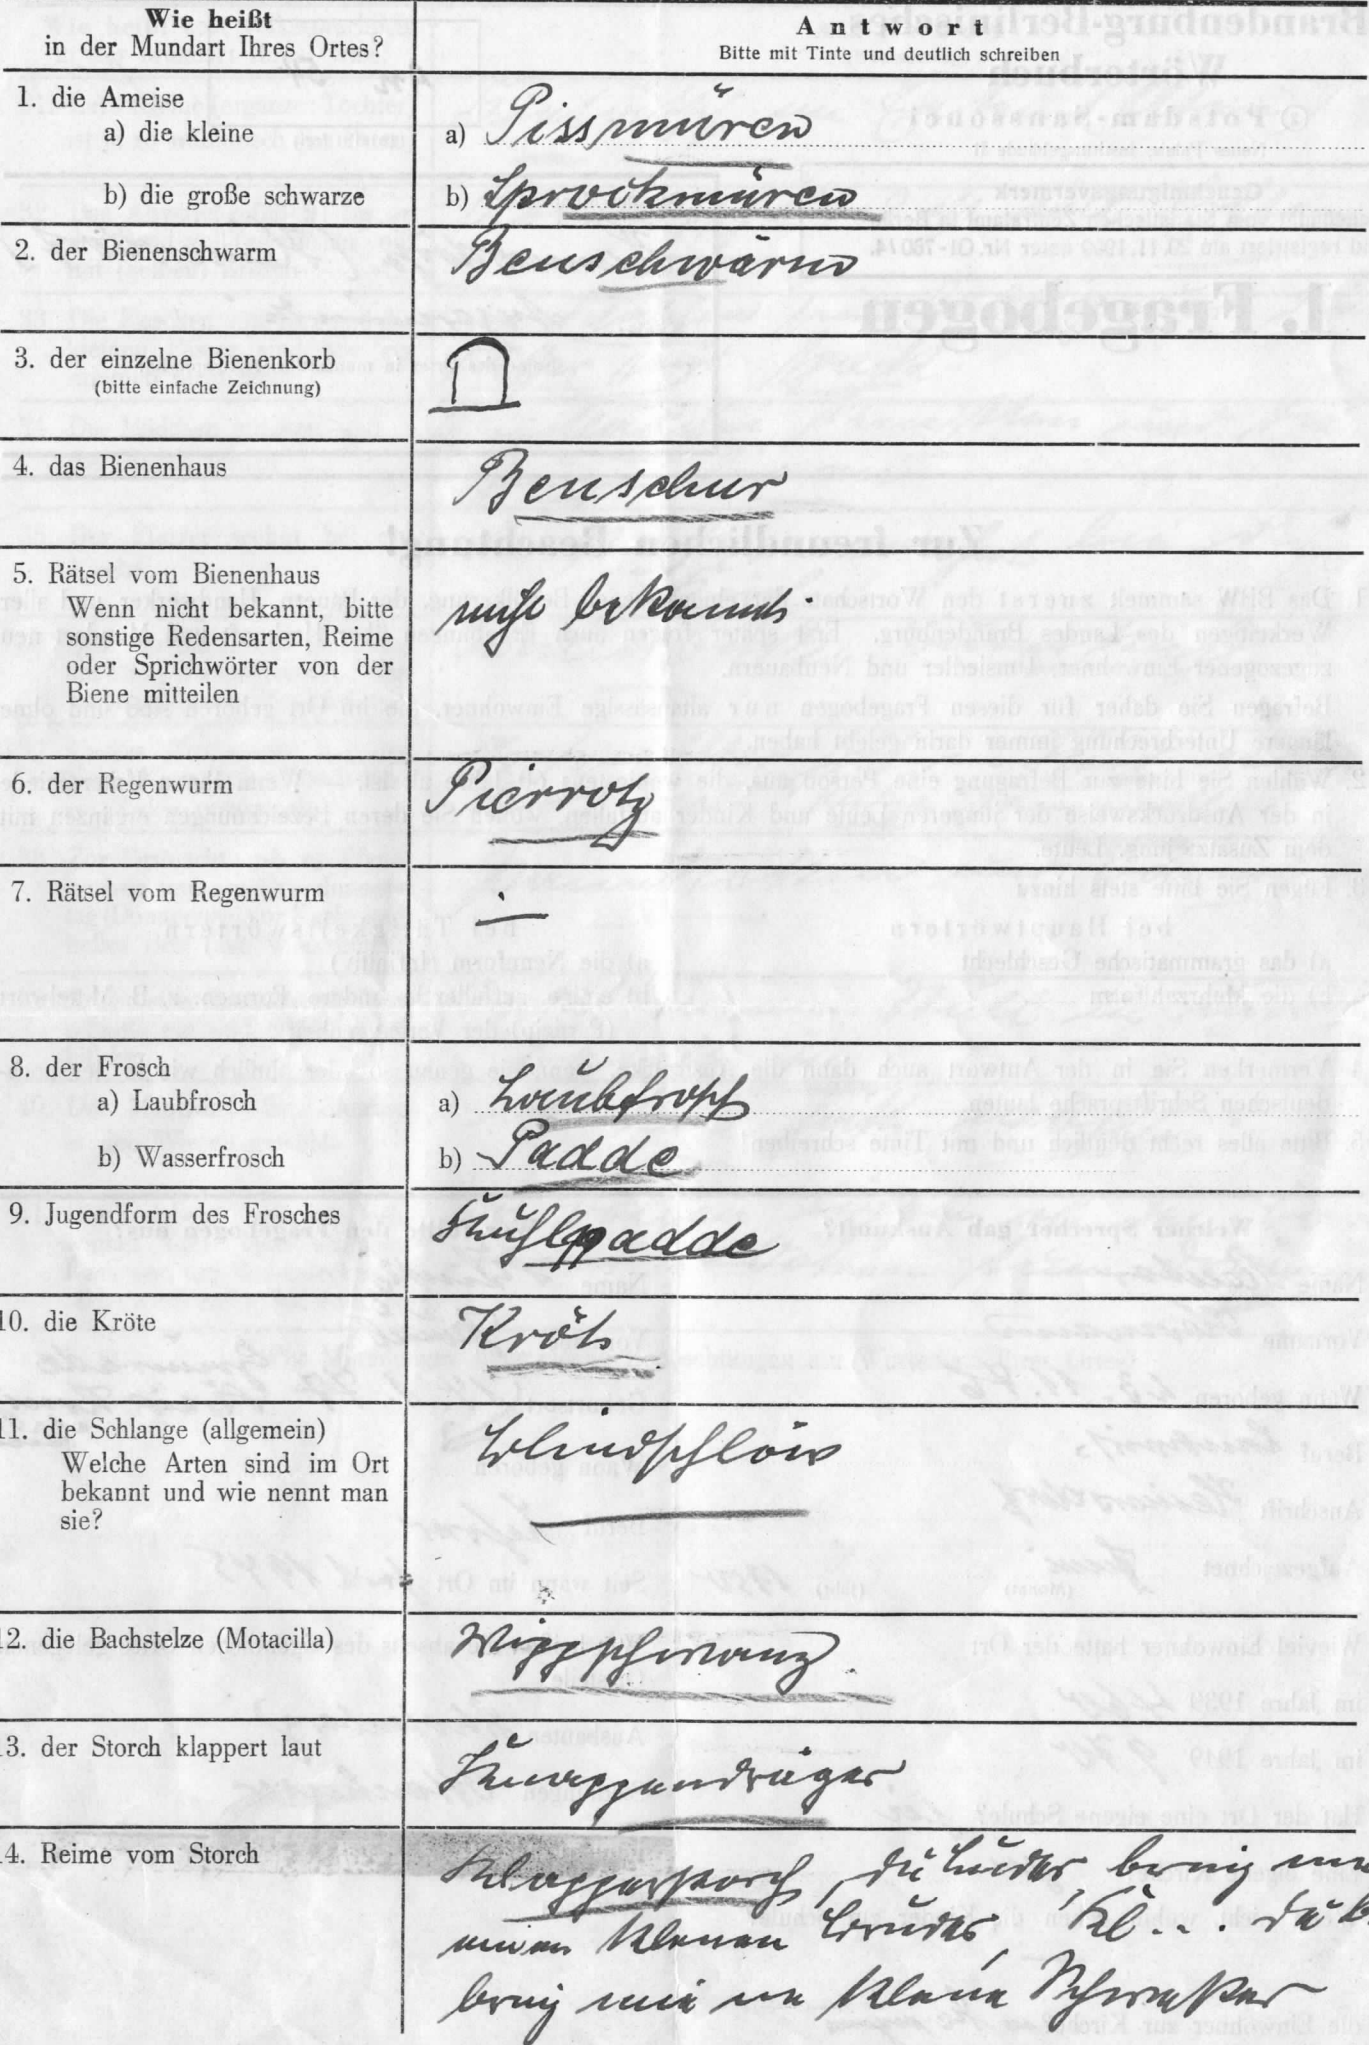 Wie heißt
in der Mundart Ihres Ortes?
Antwort
Bitte mit Tinte und deutlich schreiben
1. die Ameise
a) die kleine
a) Pissmüren
b) die große schwarze
b) Sprockmüren
2. der Bienenschwarm
Benschwärm
3. der einzelne Bienenkorb
(bitte einfache Zeichnung)
4. das Bienenhaus
Benschur
5. Rätsel vom Bienenhaus
Wenn nicht bekannt, bitte
sonstige Redensarten, Reime
oder Sprichwörter von der
Biene mitteilen
nicht bekannt
6. der Regenwurm
Pierrotz
7. Rätsel vom Regenwurm
8. der Frosch
a) Laubfrosch
a) Laubfrosch
b) Wasserfrosch
b) Padde
9. Jugendform des Frosches
Kuhlpadde
10. die Kröte
Kröt
11. die Schlange (allgemein)
Welche Arten sind im Ort
bekannt und wie nennt man
sie?
12. die Bachstelze (Motacilla)
Wippschwanz
13. der Storch klappert laut
Knappendräger
14. Reime vom Storch
Klapperstorch, du Luder, bring
einen klenen Bruder, Kl... du
bring mie ne klene Schwester